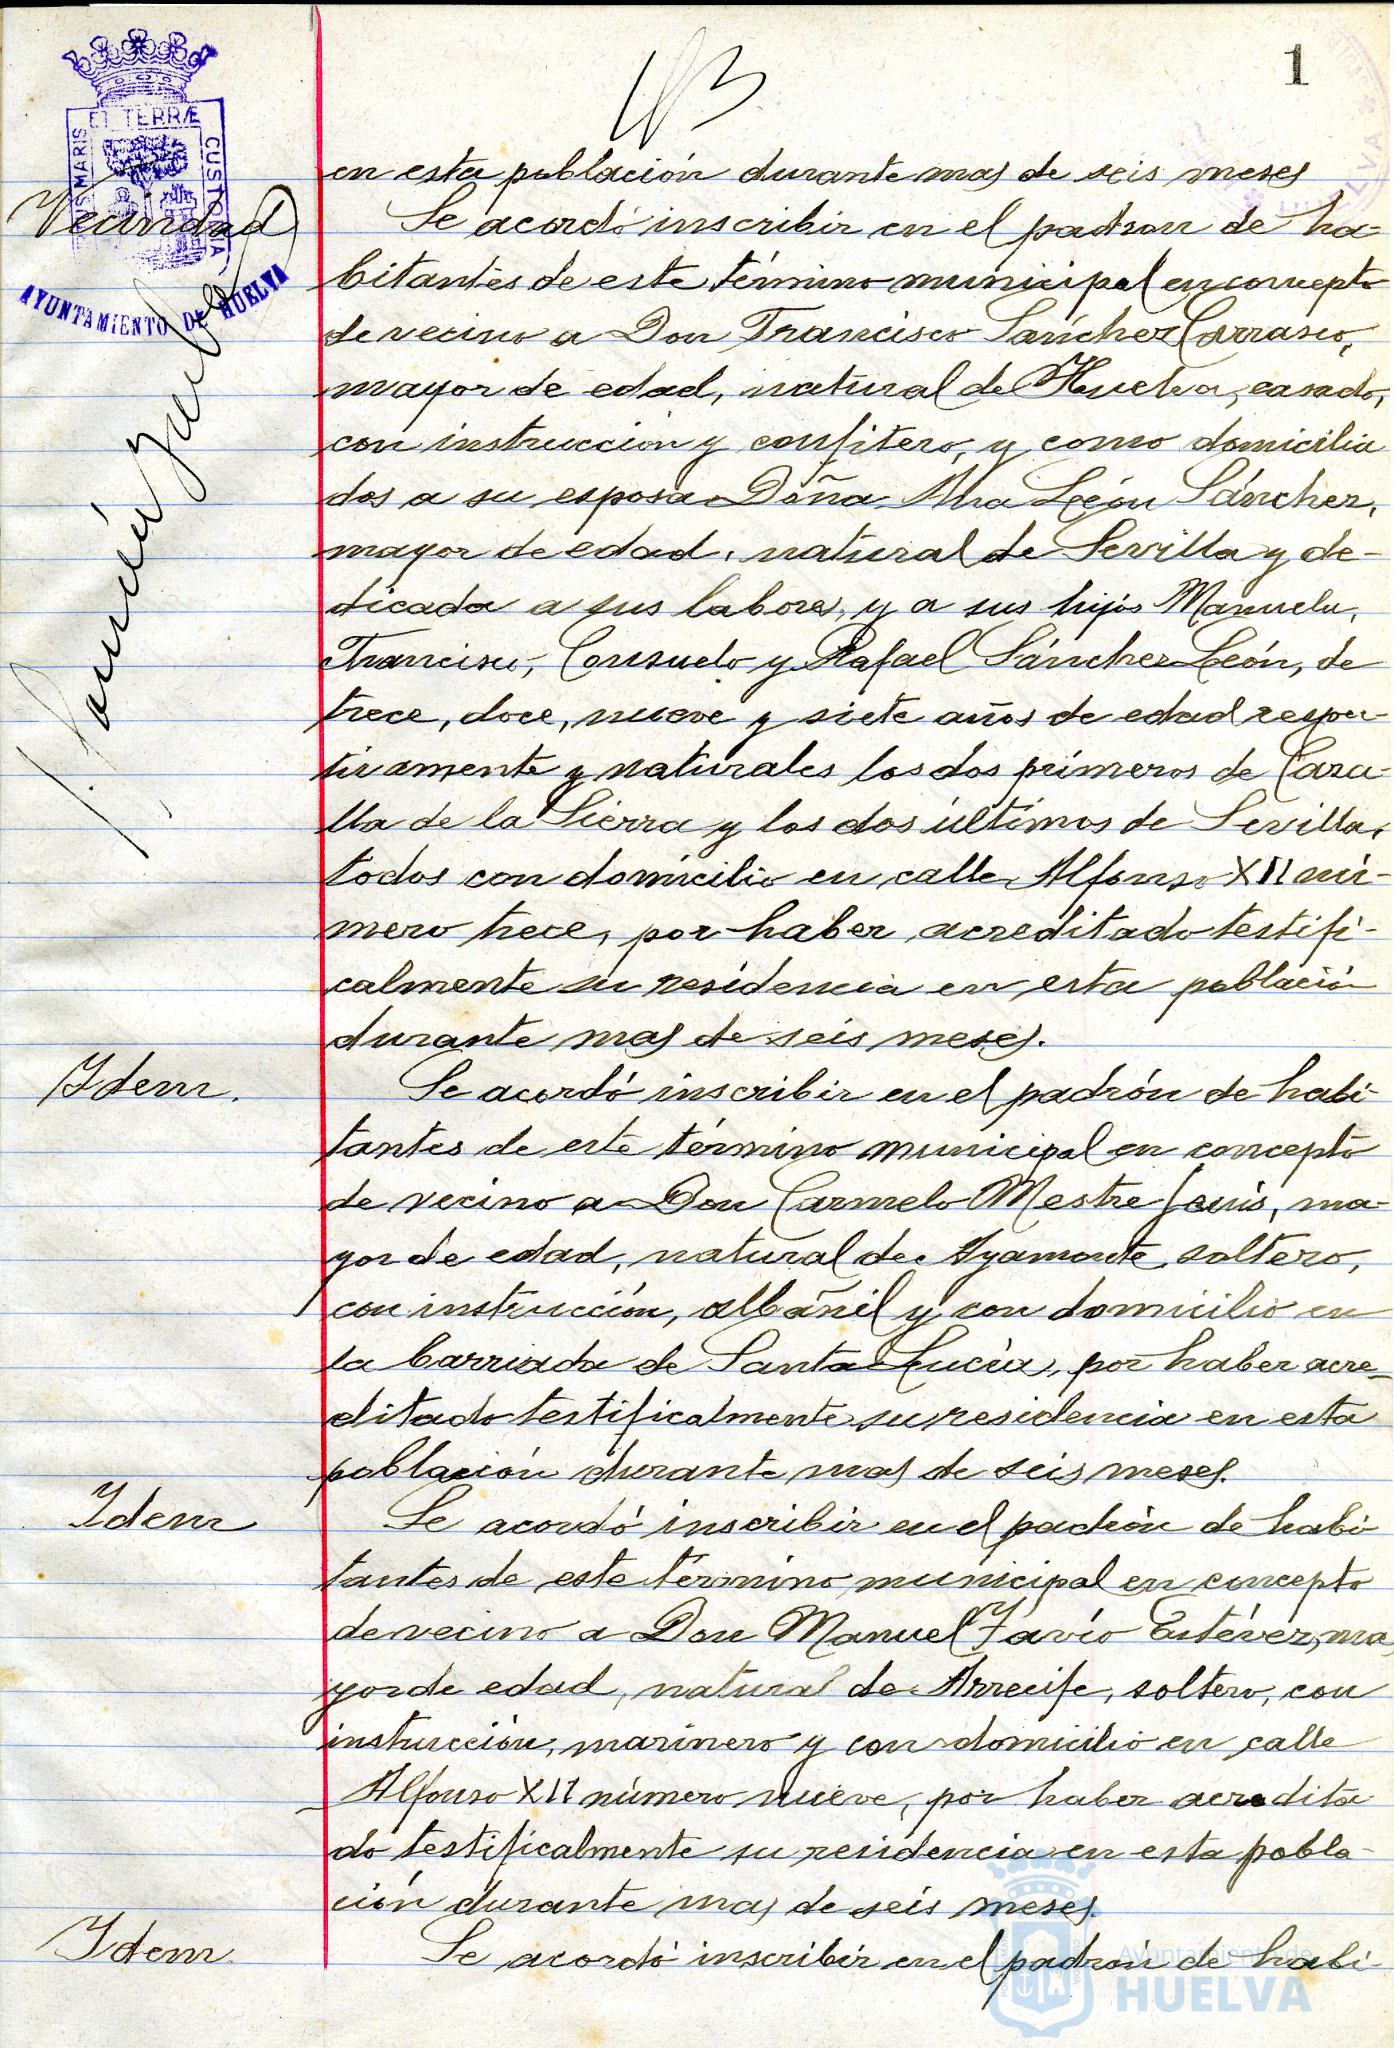 1
en esta población durante mas de seis meses
Vecindad
Se acordó inscribir en el padron de ha-
bitantes de este término municipal en concepto
de vecino a Don Francisco Sánchez Carrasco,
mayor de edad, natural de Huelva, casado,
con instruccion y confitero, y como domicilia
dos a su esposa Doña Ana León Sánchez,
mayor de edad, natural de Sevilla y de-
dicada a sus labores, y a sus hijos Manuela,
Francisco, Consuelo y Rafael Sánchez León, de
trece, doce, nueve y siete años de edad respec-
tivamente y naturales los dos primeros de Caza-
lla de la Sierra y los dos últimos de Sevilla,
todos con domicilio en calle Alfonso XII nú-
mero trece, por haber acreditado testifi-
calmente su residencia en esta población
durante mas de seis meses.
Idem.
Se acordó inscribir en el padrón de habi-
tantes de este término municipal en concepto
de vecino a Don Carmelo Mestre, ma-
yor de edad, natural de Ayamonte, soltero,
con instrucción, albañil y con domicilio en
la barriada de Santa Lucía, por haber acre-
ditado testificalmente su residencia en esta
población durante mas de seis meses.
Idem
Se acordó inscribir en el padrón de habi
tantes de este término municipal en concepto
de vecino a Don Manuel Favío Estévez, ma
yor de edad, natural de Arrecife, soltero, con
instrucción, marinero y con domicilio en calle
Alfonso XII número nueve, por haber acredita
do testificalmente su residencia en esta pobla-
ción durante mas de seis meses.
Idem.
Se acordó inscribir en el padrón de habi-
ET TERRÆ
CUSTODIA
MARIS
AYUNTAMIENTO DE HUELVA
Ayuntamiento de
HUELVA